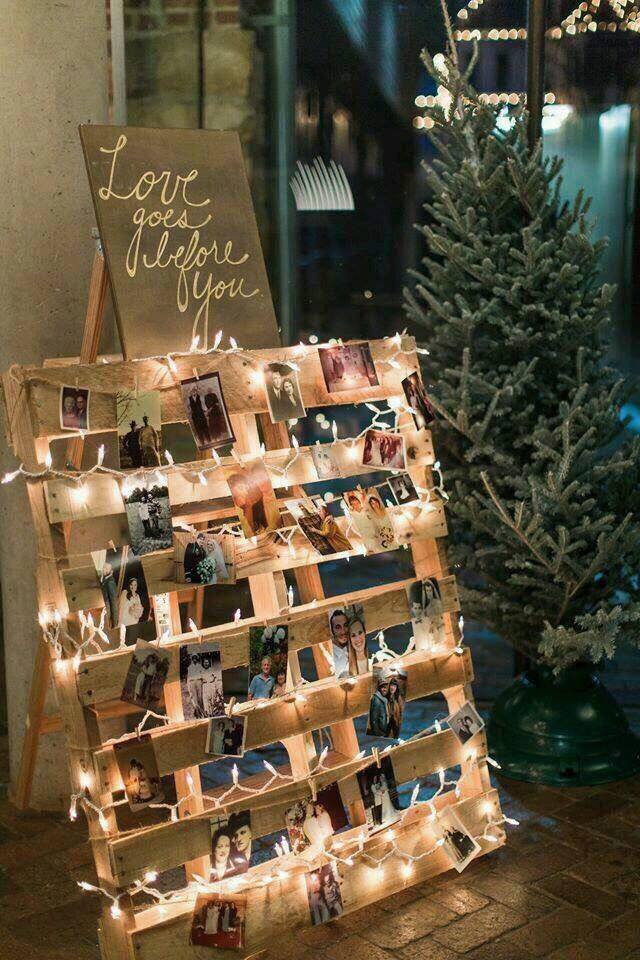 Love
goes
before
you